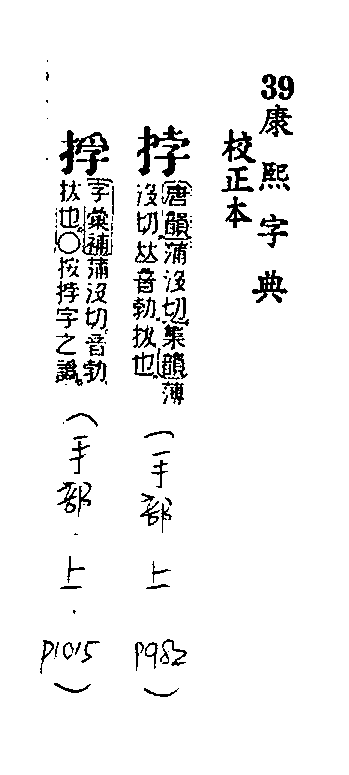 39康熙字典
校正本
挬
唐韻蒲沒切集韻薄
沒切𠀤音勃拔也
(手部 上 P982)
字彙補蒲沒切音勃
拔也○按挬字之譌。
(手部.上.P1015)